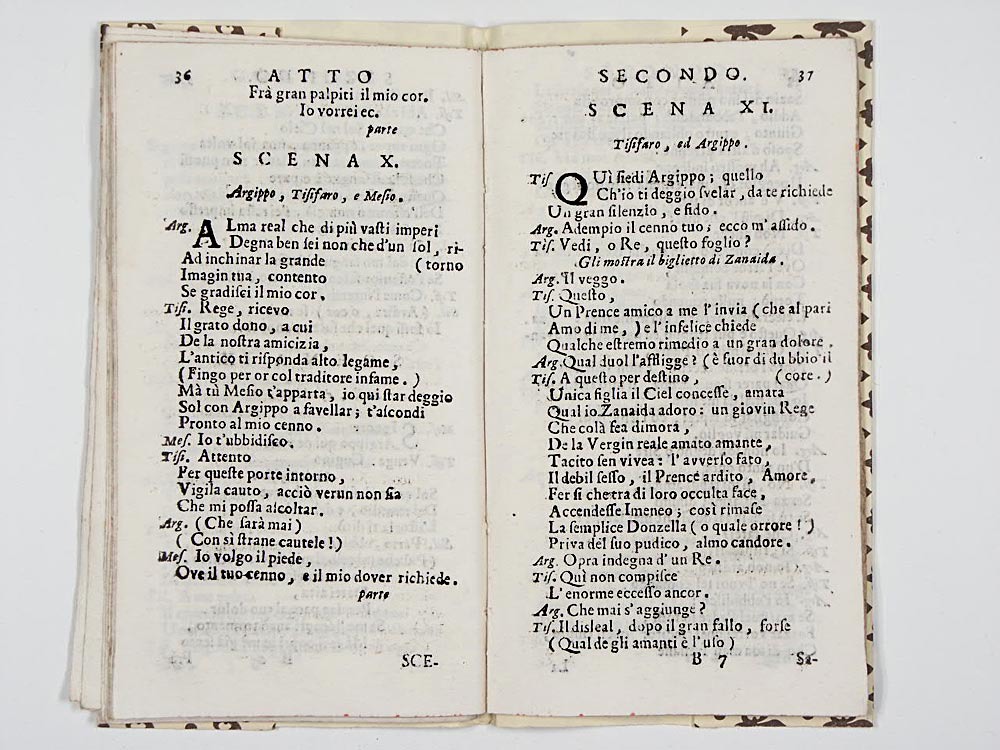 36 C A T T O
Frà gran palpiti il mio cor.
Io vorrei ec.
parte
S C E N A X.
Argippo, Tisifaro, e Mesio.
Arg. ALma real che di più vasti imperi
Degna ben sei non che d'un sol, ri-
Ad inchinar la grande (torno
Imagin tua, contento
Se gradisci il mio cor.
Tisi. Rege, ricevo
Il grato dono, a cui
De la nostra amicizia,
L'antico ti risponda alto legame,
(Fingo per or col traditore infame.)
Mà tù Mesio t'apparta, io qui star deggio
Sol con Argippo a favellar; t'ascondi
Pronto al mio cenno.
Mes. Io t'ubbidisco.
Tisi. Attento
Per queste porte intorno,
Vigila cauto, acciò verun non sia
Che mi possa ascoltar.
Arg. (Che sarà mai)
(Con sì strane cautele!)
Mes. Io volgo il piede,
Ove il tuo cenno, e il mio dover richiede.
parte
SCE-
SECONDO. 37
S C E N A XI.
Tisifaro, ed Argippo.
Tis QUì siedi Argippo; quello
Ch'io ti deggio svelar, da te richiede
Un gran silenzio, e fido.
Arg. Adempio il cenno tuo; ecco m'assido.
Tis. Vedi, o Re, questo foglio?
Gli mostra il biglietto di Zanaida.
Arg. Il veggo.
Tis. Questo,
Un Prence amico a me l'invia (che al pari
Amo di me,) e l'infelice chiede
Qualche estremo rimedio a un gran dolore.
Arg. Qual duol l'affligge? (è fuor di dubbio il
Tis. A questo per destino, (core.)
Unica figlia il Ciel concesse, amata
Qual io Zanaida adoro: un giovin Rege
Che colà fea dimora,
De la Vergin reale amato amante,
Tacito sen vivea: l'avverso fato,
Il debil sesso, il Prence ardito, Amore,
Fer sì che tra di loro occulta face,
Accendesse Imeneo; così rimase
La semplice Donzella (o quale orrore!)
Priva del suo pudico, almo candore.
Arg. Opra indegna d'un Re.
Tis. Quì non compisce
L'enorme eccesso ancor.
Arg. Che mai s'aggiunge?
Tis. Il disleal, dopo il gran fallo, forse
(Qual de gli amanti è l'uso)
B 7 Sa-